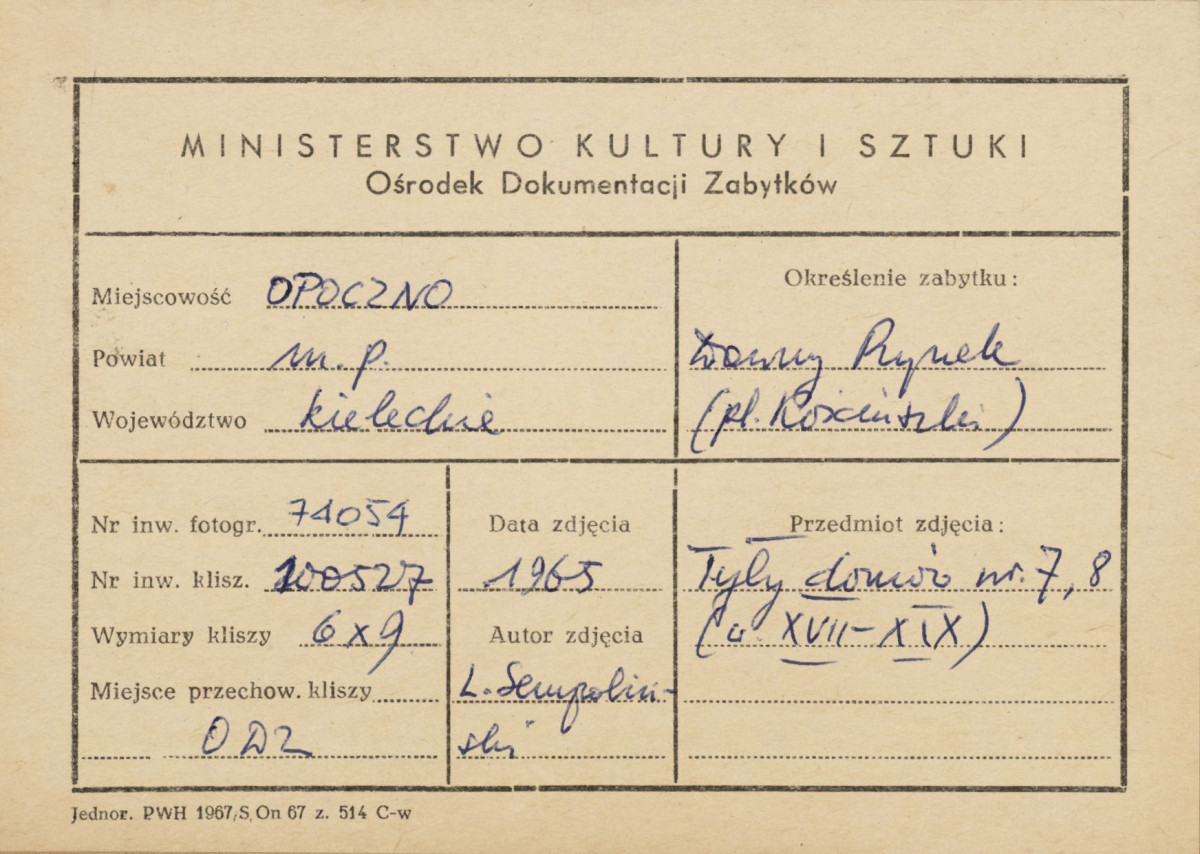 MINISTERSTWO KULTURY I SZTUKI
Ośrodek Dokumentacji Zabytków
Miejscowość OPOCZNO
Powiat m. p.
Województwo kieleckie
Określenie zabytku:
Dawny Rynek
(pl. Kościuszki)
Nr inw. fotogr. 74054
Nr inw. klisz. 100527
Wymiary kliszy 6x9
Miejsce przechow. kliszy
ODZ
Data zdjęcia
1965
Autor zdjęcia
L. Sempoliń-
ski
Przedmiot zdjęcia:
Tyły domów nr. 7, 8
(w. XVII-XIX)
Jednor. PWH 1967, S, On 67 z. 514 C-w